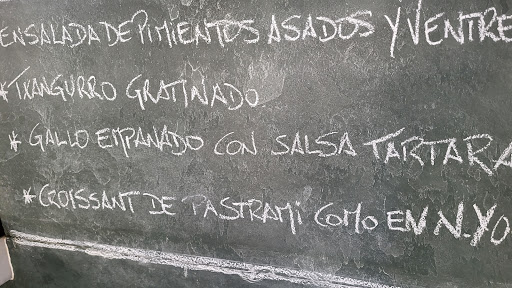 ENSALADA DE PIMIENTOS ASADOS Y VENTRE
*TXANGURRO GRATINADO
* GALLO EMPANADO CON SALSA TARTARA
*CROISSANT DE PASTRAMI COMO EN N.YO